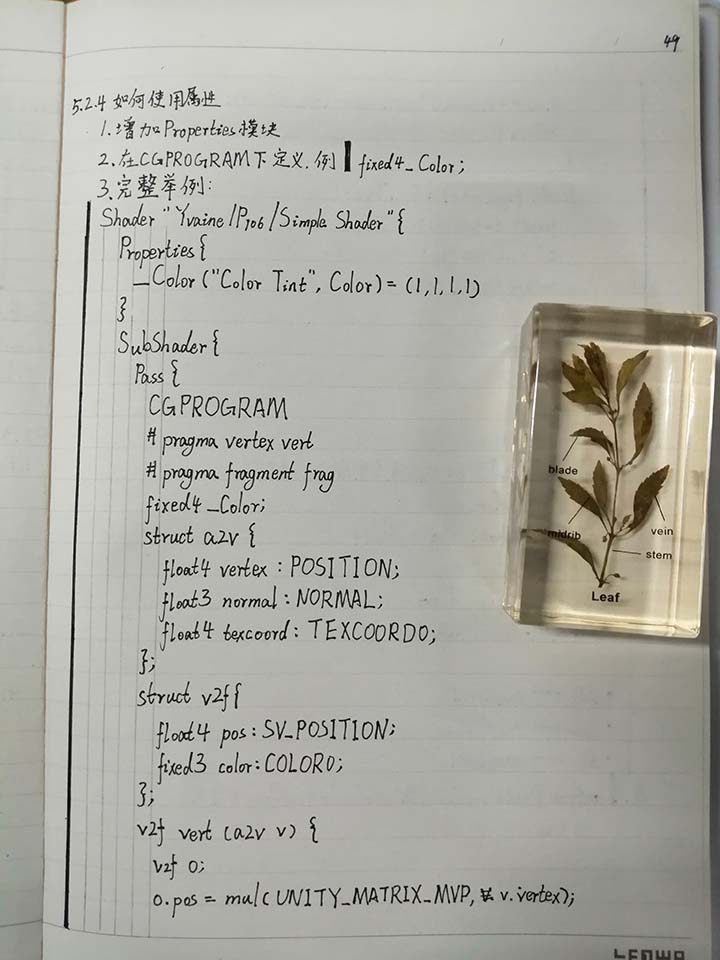 49
5.2.4 如何使用属性
1.增加Properties模块
2.在CGPROGRAM下定义.例 fixed4_Color;
3.完整举例:
Shader "Yvaine/P106/Simple Shader"{
Properties{
_Color("Color Tint", Color)=(1,1,1,1)
}
SubShader{
Pass{
CGPROGRAM
#pragma vertex vert
#pragma fragment frag
fixed4 _Color;
struct a2v {
float4 vertex : POSITION;
float3 normal : NORMAL;
float4 texcoord : TEXCOORD0;
};
struct v2f{
float4 pos:SV_POSITION;
fixed3 color:COLOR0;
};
v2f vert (a2v v) {
v2f o;
o.pos = mul(UNITY_MATRIX_MVP, v.vertex);
blade
midrib
vein
stem
Leaf